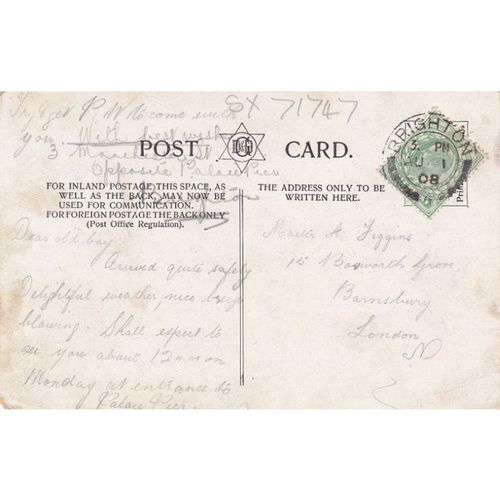 Try & get P. W. to come with
you. With best wish
3 Manchester St
Opposite Palace Pier
Brighton
SX 71747
POST CARD.
D&G
BRIGHTON
3. PM
JU 1
08
FOR INLAND POSTAGE THIS SPACE, AS
WELL AS THE BACK, MAY NOW BE
USED FOR COMMUNICATION.
FOR FOREIGN POSTAGE THE BACK ONLY
(Post Office Regulation).
THE ADDRESS ONLY TO BE
WRITTEN HERE.
Dear old boy
Arrived quite safely
Delightful weather, nice breeze
blowing. Shall expect to
see you about 12 noon on
Monday at entrance to
Palace Pier
Master A. Figgins
15 Boxworth Grove,
Barnsbury
London
N